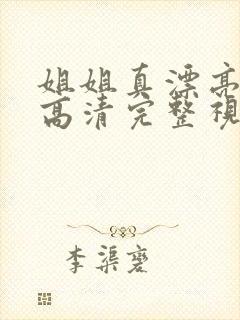 姐姐真漂亮
高清完整視
李渠䃺